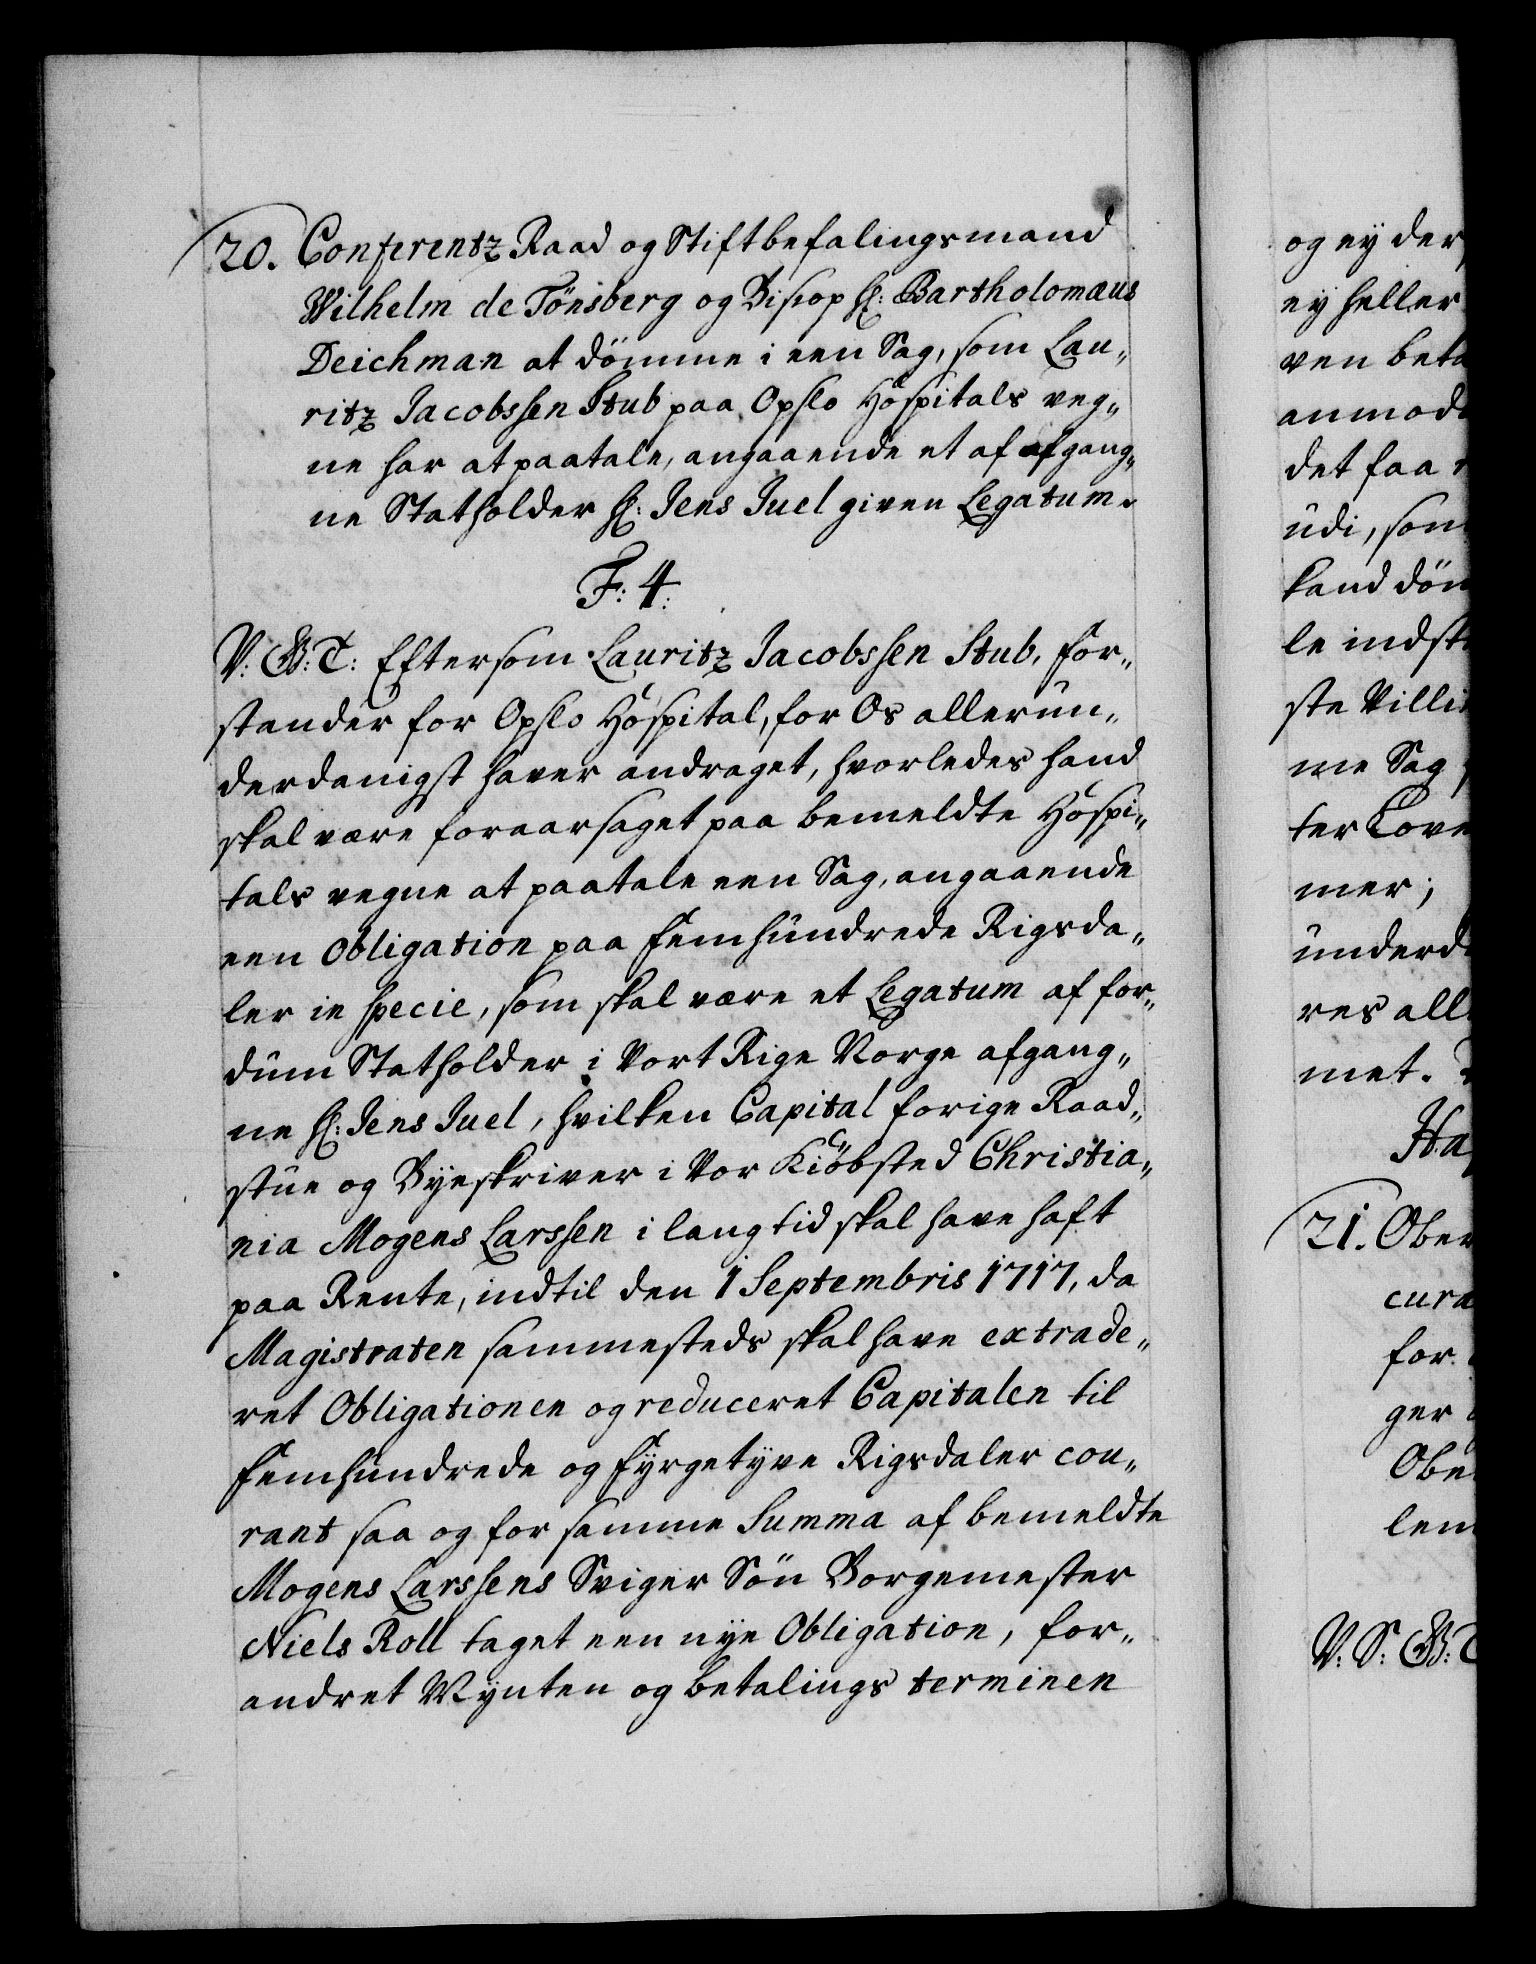 20. Conferentz Raad og Stiftbefalingsmand
Wilhelm de Tönsberg og Biscop H: Bartholomæus
Deichman at dömme i een Sag, som Lau„
ritz Jacobssen Stub paa Opslo Hospitals veg„
ne har at paatale, angaaende et af afgang„
ne Statholder H: Jens Juel given Legatum.
F: 4:
V: G: T: Eftersom Lauritz Jacobssen Stub, for„
stander for Opslo Hospital, for Os allerun„
derdanigst haver andraget, hvorledes hand
skal være foraarsaget paa bemeldte Hospi„
tals vegne at paatale een Sag, angaaende
een Obligation paa femhundrede Rigsda„
ler in specie, som skal være et Legatum af for„
dum Statholder i Vort Rige Norge afgang„
ne H: Jens Juel, hvilken Capital forige Raad„
stue og Byeskriver i Vor Kiöbsted Christia„
nia Mogens Larssen i lang tid skal have haft
paa Rente, indtil den 1 Septembris 1717, da
Magistraten sammesteds skal have extrade„
ret Obligationen og reduceret Capitalen til
femhundrede og fyrgetyve Rigsdaler cou„
rant saa og for samme Summa af bemeldte
Mogens Larssens Sviger Sön Borgemester
Niels Roll taget een nye Obligation, for„
andret Mynten og betalings terminen
og ey der
ey heller
ven beta
anmod
det faa
udi, som
kand döm
le indst
ste Villi
me Sag
ter Love
mer;
underd
res all
met.
21. Ober
cura
for
ger
Obe
lem
V: S: G: T